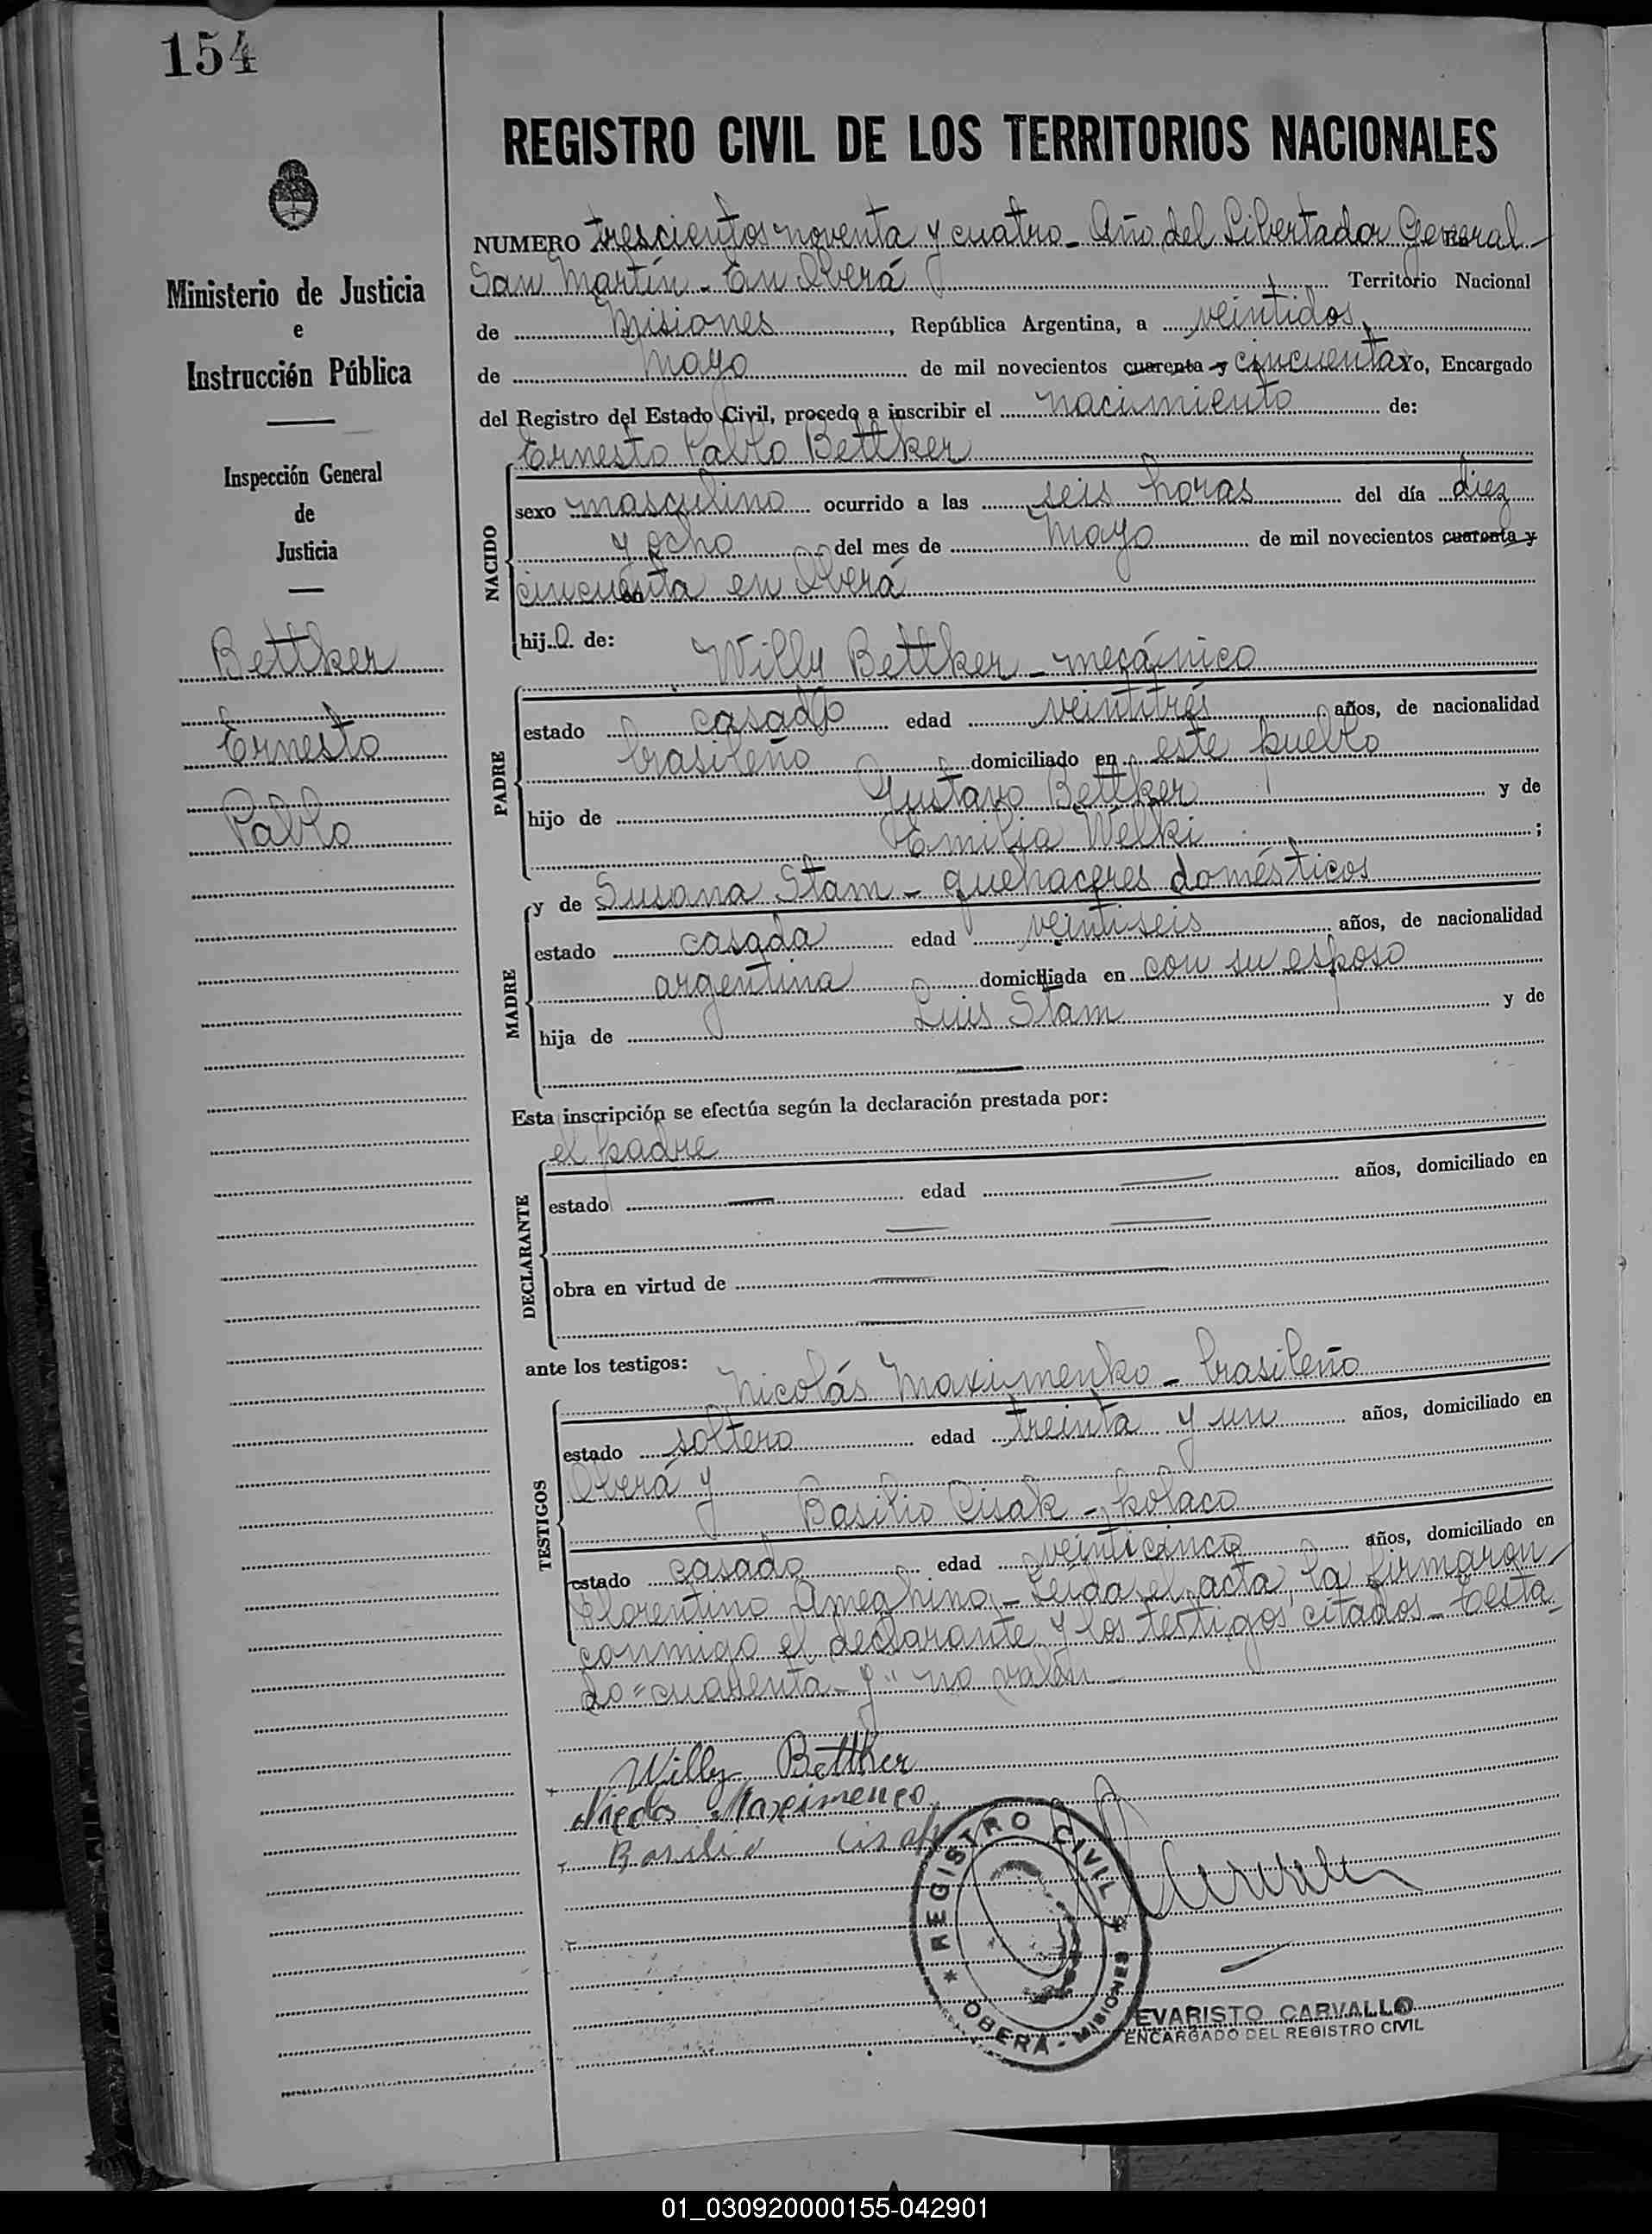 154
REGISTRO CIVIL DE LOS TERRITORIOS NACIONALES
Ministerio de Justicia
e
Instrucción Pública
Inspección General
de
Justicia
Bettker
Ernesto
Pablo
NUMERO trescientos noventa y cuatro - Año del Libertador General
San Martín - En Oberá Territorio Nacional
de Misiones, República Argentina, a veintidos
de mayo de mil novecientos cuarenta y cincuenta Yo, Encargado
del Registro del Estado Civil, procedo a inscribir el nacimiento de:
Ernesto Pablo Bettker
NACIDO
sexo masculino ocurrido a las seis horas del día diez
y ocho del mes de mayo de mil novecientos cuarenta y
cincuenta en Oberá
hijo de:
Willy Bettker - mecánico
PADRE
estado casado edad veintitrés años, de nacionalidad
brasileño domiciliado en este pueblo
hijo de Gustavo Bettker y de
Emilja Welki ;
y de Susana Stam - quehaceres domésticos
MADRE
estado casada edad veintiseis años, de nacionalidad
argentina domiciliada en con su esposo
hija de Luis Stam y de
Esta inscripción se efectúa según la declaración prestada por:
el padre
DECLARANTE
estado edad años, domiciliado en
obra en virtud de
ante los testigos:
Nicolás Maximenko - brasileño
TESTIGOS
estado soltero edad treinta y un años, domiciliado en
Oberá y
Basilio Cisak - polaco
estado casado edad veinticinco años, domiciliado en
Florentino Ameghino - Leída el acta, la firmaron
conmigo el declarante y los testigos citados - Testa
do "cuarenta - y" no valen
Willy Bettker
Nicolas Maximenco
Basilio Cisak
REGISTRO CIVIL
OBERÁ - MISIONES
EVARISTO CARVALLO
ENCARGADO DEL REGISTRO CIVIL
01_030920000155-042901